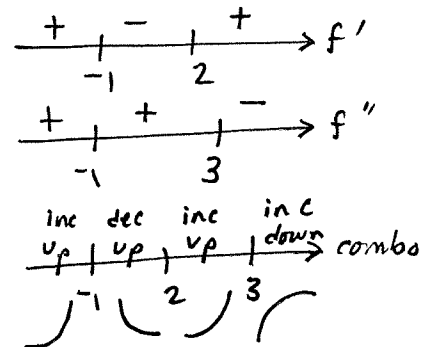 + − + f'
-1 2
+ + − f"
-1 3
inc dec inc inc
up up up down combo
-1 2 3